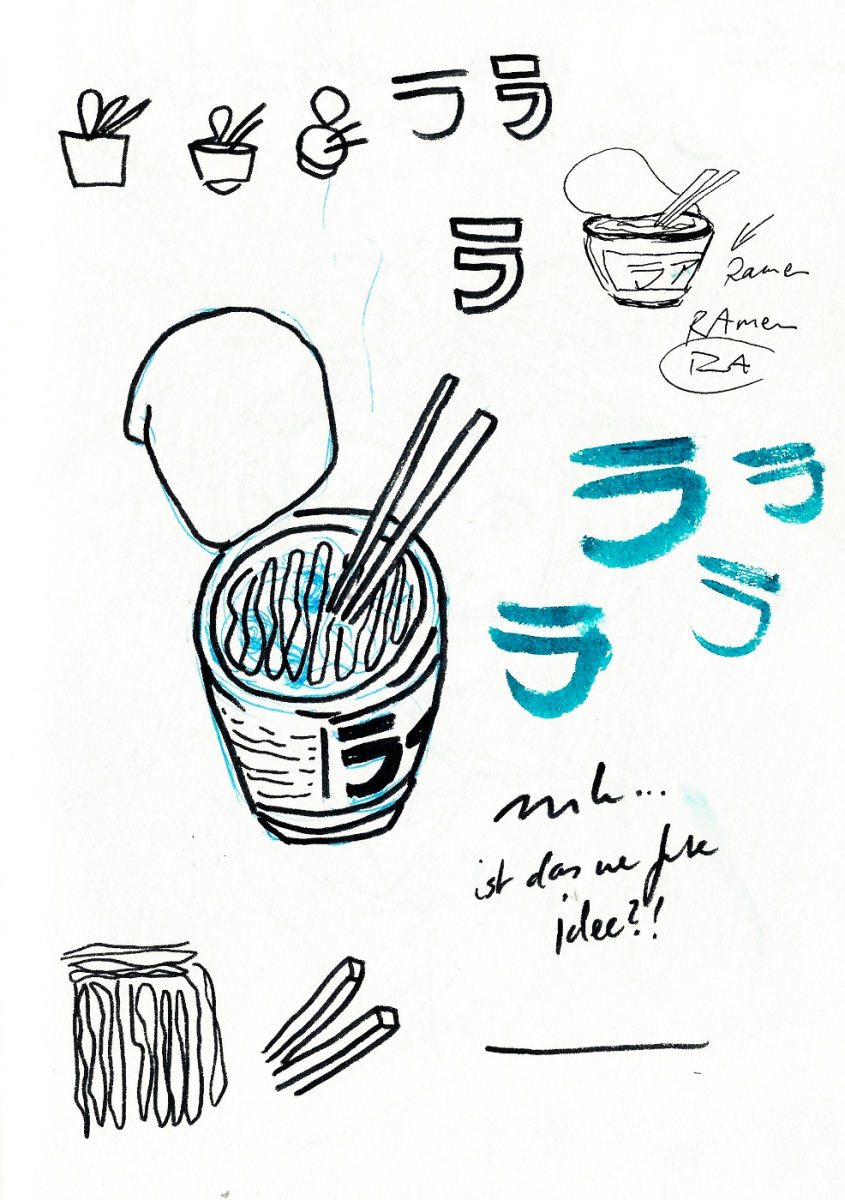 ララ
ラ
Ramen
RAmen
RA
ラ ラ
ラ
ラ
ラ
mh...
ist das ne gute
idee?!